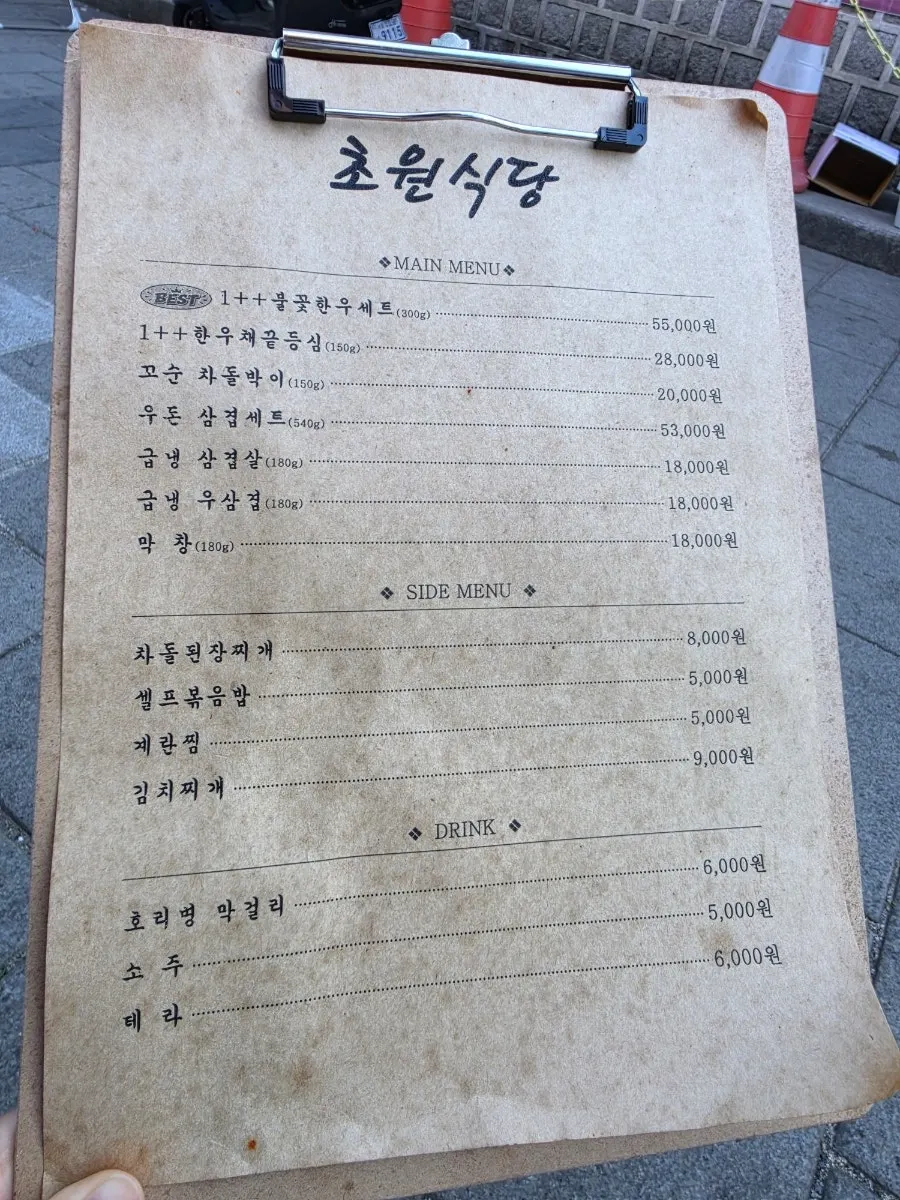 9115
초원식당
❖MAIN MENU❖
BEST 1++불꽃한우세트(300g) 55,000원
1++한우채끝등심(150g) 28,000원
꼬순 차돌박이(150g) 20,000원
우돈 삼겹세트(540g) 53,000원
급냉 삼겹살(180g) 18,000원
급냉 우삼겹(180g) 18,000원
막 창(180g) 18,000원
❖ SIDE MENU ❖
차돌된장찌개 8,000원
셀프볶음밥 5,000원
계란찜 5,000원
김치찌개 9,000원
❖ DRINK ❖
호리병 막걸리 6,000원
소 주 5,000원
테 라 6,000원